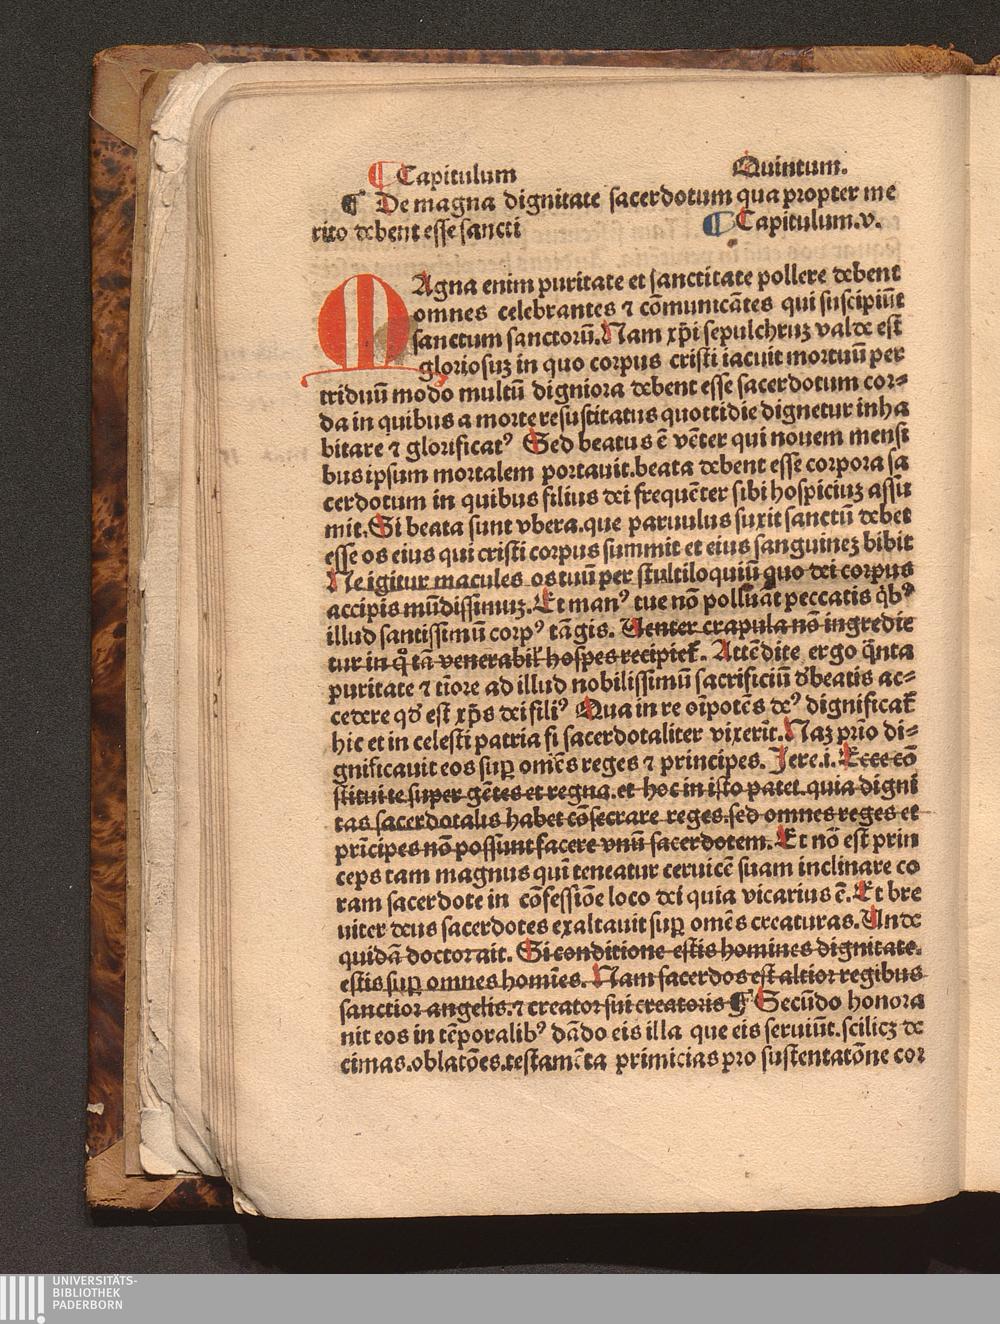 ¶ Capitulum Quintum.
¶ De magna dignitate sacerdotum qua propter me
rito debent esse sancti ¶ Capitulum.v.
MAgna enim puritate et sanctitate pollere debent
omnes celebrantes ⁊ cōmunicātes qui suscipiūt
sanctum sanctorū. Nam xp̄i sepulchruꝫ valde est
gloriosuꝫ in quo corpus cristi iacuit mortuū per
triduū modo multū digniora debent esse sacerdotum cor⸗
da in quibus a morte resuscitatus quottidie dignetur inha
bitare ⁊ glorificatꝰ Sed beatus ē vēter qui nouem mensi
bus ipsum mortalem portauit.beata debent esse corpora sa
cerdotum in quibus filius dei frequēter sibi hospiciuꝫ assu
mit. Si beata sunt vbera.que paruulus suxit sanctū debet
esse os eius qui cristi corpus summit et eius sanguineꝫ bibit
Ne igitur macules os tuū per stultiloquiū quo dei corpus
accipis mūdissimuꝫ. Et manꝰ tue nō polluāt peccatis q̄bꝰ
illud santissimū corpꝰ tāgis. Uenter crapula nō ingredie
tur in q̊ tā venerabiƚ hospes recipieṫ. Attēdite ergo q̄nta
puritate ⁊ tīore ad illud nobilissimū sacrificiū dꝫbeatis ac⸗
cedere qd̓ est xp̄s dei filiꝰ Qua in re oīpotēs deꝰ dignificaṫ
hic et in celesti patria si sacerdotaliter vixerīt. Naꝫ prīo di⸗
gnificauit eos suꝑ omēs reges ⁊ principes. Jere.i. Ecce cō
stitui te super gētes et regna.et hoc in isto patet.quia digni
tas sacerdotalis habet cōsecrare reges.sed omnes reges et
prīcipes nō possunt facere vnū sacerdotem. Et nō est prin
ceps tam magnus quī teneatur ceruicē suam inclinare co
ram sacerdote in cōfessiōe loco dei quia vicarius ē. Et bre
uiter deus sacerdotes exaltauit suꝑ omēs creaturas. Unde
quidā doctor ait. Si conditione estis homines dignitate.
estis suꝑ omnes homīes. Nam sacerdos est altior regibus
sanctior angelis.⁊ creator sui creatoris ¶ Secūdo honora
nit eos in tēporalibꝰ dādo eis illa que eis seruiūt.scilicꝫ de
cimas.oblatōes.testamēta primicias pro sustentatōne coꝛ
UNIVERSITÄTS-
BIBLIOTHEK
PADERBORN